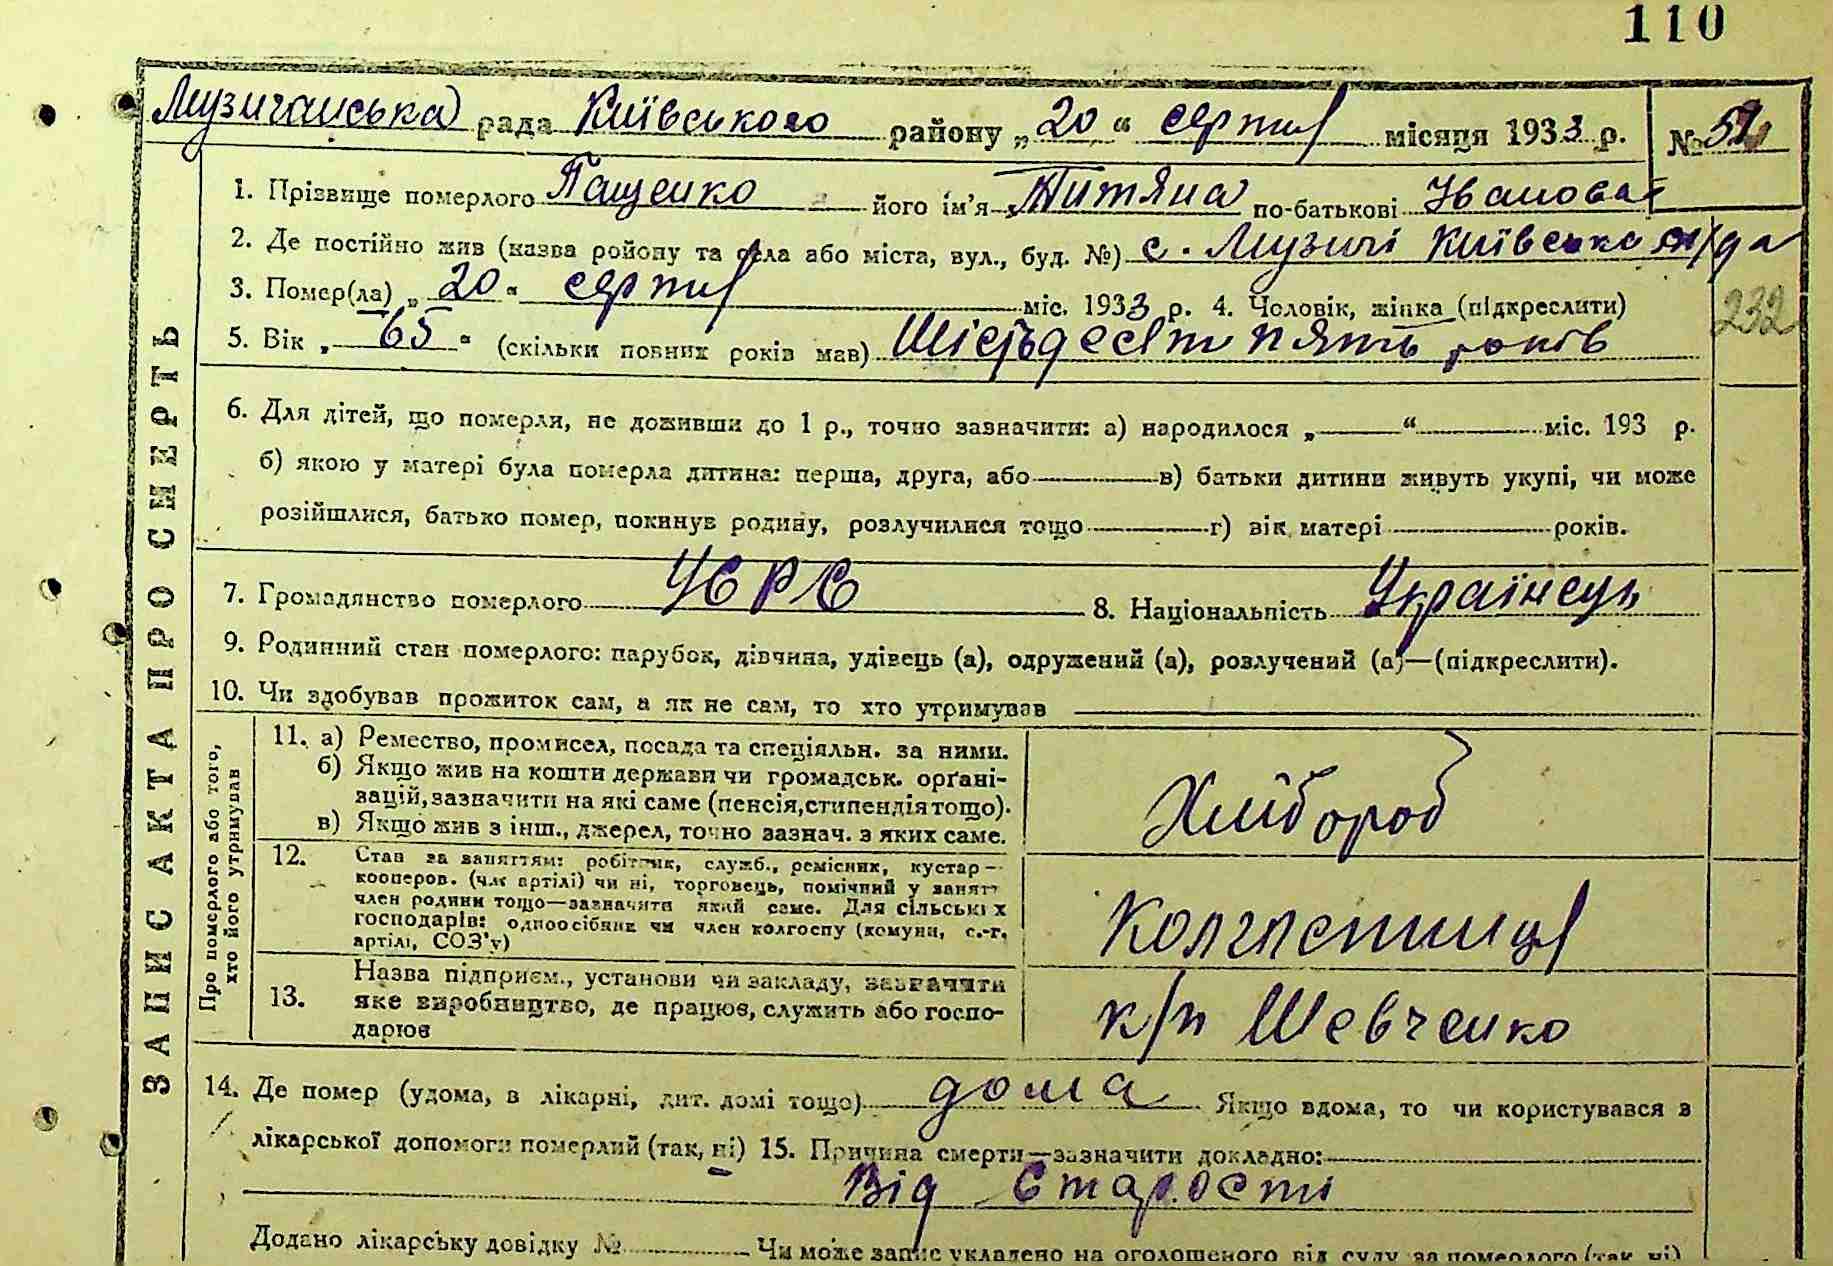 110
Музичанська рада Київського району „20“ серпня місяця 1933 р. №
1. Прізвище померлого Пащенко його ім'я Титяна по-батькові Іванова
2. Де постійно жив (назва району та села або міста, вул., буд. №) с. Музичі Київського р/да
3. Помер(ла) „20“ серпня міс. 1933 р. 4. Чоловік, жінка (підкреслити)
232
5. Вік „65“ (скільки повних років мав) Шістьдесят пять років
6. Для дітей, що померли, не доживши до 1 р., точно зазначити: а) народилося „ “ міс. 193 р.
б) якою у матері була померла дитина: перша, друга, або в) батьки дитини живуть укупі, чи може
розійшлися, батько помер, покинув родину, розлучилися тощо г) вік матері років.
7. Громадянство померлого УСРС 8. Національність Українець
9. Родинний стан померлого: парубок, дівчина, удівець (а), одружений (а), розлучений (а)—(підкреслити).
10. Чи здобував прожиток сам, а як не сам, то хто утримував
ЗАПИС АКТА ПРО СМЕРТЬ
Про померлого або того,
хто його утримував
11. а) Ремество, промисел, посада та спеціяльн. за ними.
б) Якщо жив на кошти держави чи громадськ. орґані-
зацій, зазначити на які саме (пенсія, стипендія тощо).
в) Якщо жив з інш., джерел, точно зазнач. з яких саме.
Хлібороб
12. Стан за заняттям: робітник, служб., ремісник, кустар—
кооперов. (чл. артілі) чи ні, торговець, помічний у занят.
член родини тощо—зазначити який саме. Для сільських
господарів: одноосібник чи член колгоспу (комуни, с.-г.
артілі, СОЗ'у)
Колгпстниця
13. Назва підприєм., установи чи закладу, зазначити
яке виробництво, де працює, служить або госпо-
дарює
к/п Шевченко
14. Де помер (удома, в лікарні, дит. домі тощо) дома Якщо вдома, то чи користувався з
лікарської допомоги померлий (так, ні) 15. Причина смерти—зазначити докладно:
Від Старости
Додано лікарську довідку № Чи може запис укладено на оголошеного від суду за померлого (так, ні)